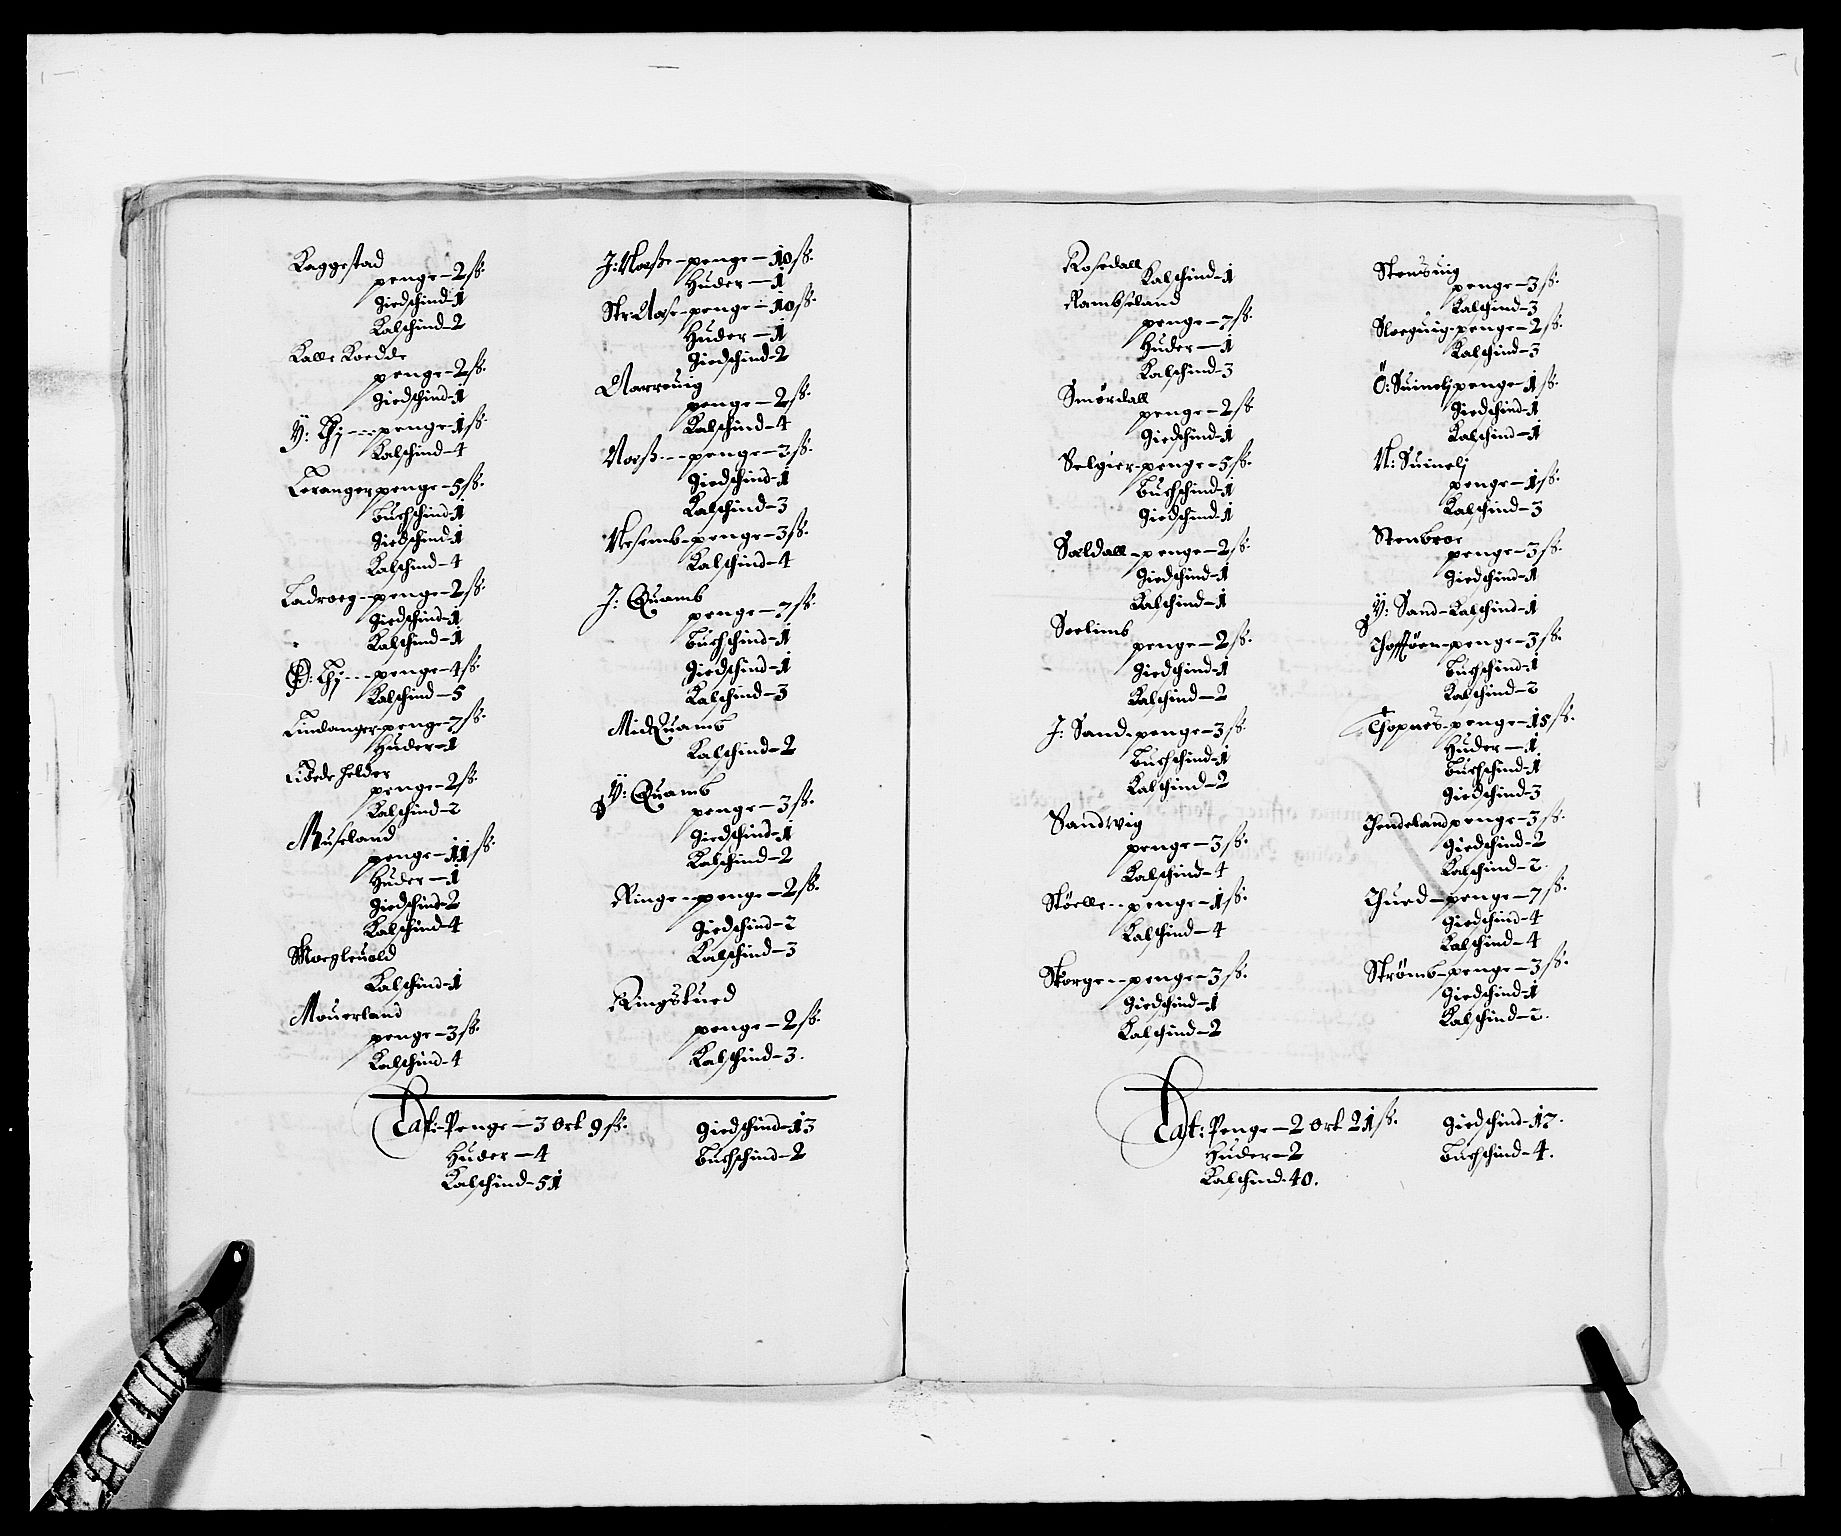 Kaggestad
penge - 2 ß.
Giedschind - 1
Kalschind - 2
Kalle Koedde
penge - 2 ß.
Giedschind - 1
Y: Thj --- penge - 1 ß.
Kalschind - 4
Leranger penge - 5 ß.
Buchschind - 1
Giedschind - 1
Kalschind - 4
Ladroeg - penge - 2 ß.
Giedschind - 1
Kalschind - 1
Ø: Thj --- penge - 4 ß.
Kalschind - 5
Lindanger - penge - 7 ß.
Huder - 1
penge - 2 ß.
Kalschind - 2
Museland
penge - 11 ß.
Huder - 1
Giedschind - 2
Kalschind - 4
Moegleuold
Kalschind - 1
Mouerland
penge - 3 ß.
Kalschind - 4
J: Noeße - penge - 10 ß.
Huder - 1
Str: Noese - penge - 10 ß.
Huder - 1
Giedschind - 2
Narreuig
penge - 2 ß.
Kalschind - 4
Noeß --- penge - 3 ß.
Giedschind - 1
Kalschind - 3
Nesemb - penge - 3 ß.
Kalschind - 4
J: Quamb
penge - 7 ß.
Buchschind - 1
Giedschind - 1
Kalschind - 3
Mid Quamb
Kalschind - 2
Y: Quamb
penge - 3 ß.
Giedschind - 1
Kalschind - 2
Ringe - penge - 2 ß.
Giedschind - 2
Kalschind - 3
Ringstued
penge - 2 ß.
Kalschind - 3.
Lat: Penge - 3 Ort 9 ß.
Huder - 4
Kalschind - 51
Giedschind - 13
Buchschind - 2
Rosedall
Kalschind - 1
Rambseland
penge - 7 ß.
Huder - 1
Kalschind - 3
Smørdall
penge - 2 ß
Giedschind - 1
Selgier - penge - 5 ß.
Buchschind - 1
Giedschind - 1
Sældall - penge - 2 ß.
Giedschind - 1
Kalschind - 1
Seelimb
penge - 2 ß.
Giedschind - 1
Kalschind - 2
J: Sand - penge - 3 ß.
Buchschind - 1
Kalschind - 2
Sandwig
penge - 3 ß.
Kalschind - 4
Støelle - penge - 1 ß.
Kalschind - 4
Skorge - penge - 3 ß.
Giedschind - 1
Kalschind - 2
Stensuig
penge - 3 ß.
Kalschind - 3
Sloeguig - penge - 2 ß.
Kalschind - 3
Ö: Suinelj penge - 1 ß.
Giedschind - 1
Kalschind - 1
N: Suinelj
penge - 1 ß.
Kalschind - 3
Stenbroe
penge - 3 ß.
Giedschind - 1
Y: Sand - Kalschind - 1
penge - 3 ß.
Buchschind - 1
Kalschind - 2
Thopnes - penge - 15 ß.
Huder - 1.
Buchschind - 1
Giedschind - 3
Thendeland penge - 3 ß.
Giedschind - 2
Kalschind - 2.
Thued - penge - 7 ß.
Giedschind - 4
Kalschind - 4
Strømb - penge - 3 ß.
Giedschind - 1
Kalschind - 2.
Lat: Penge - 2 Ort 21 ß.
Huder - 2
Kalschind 40.
Giedschind - 17.
Buchschind - 4.